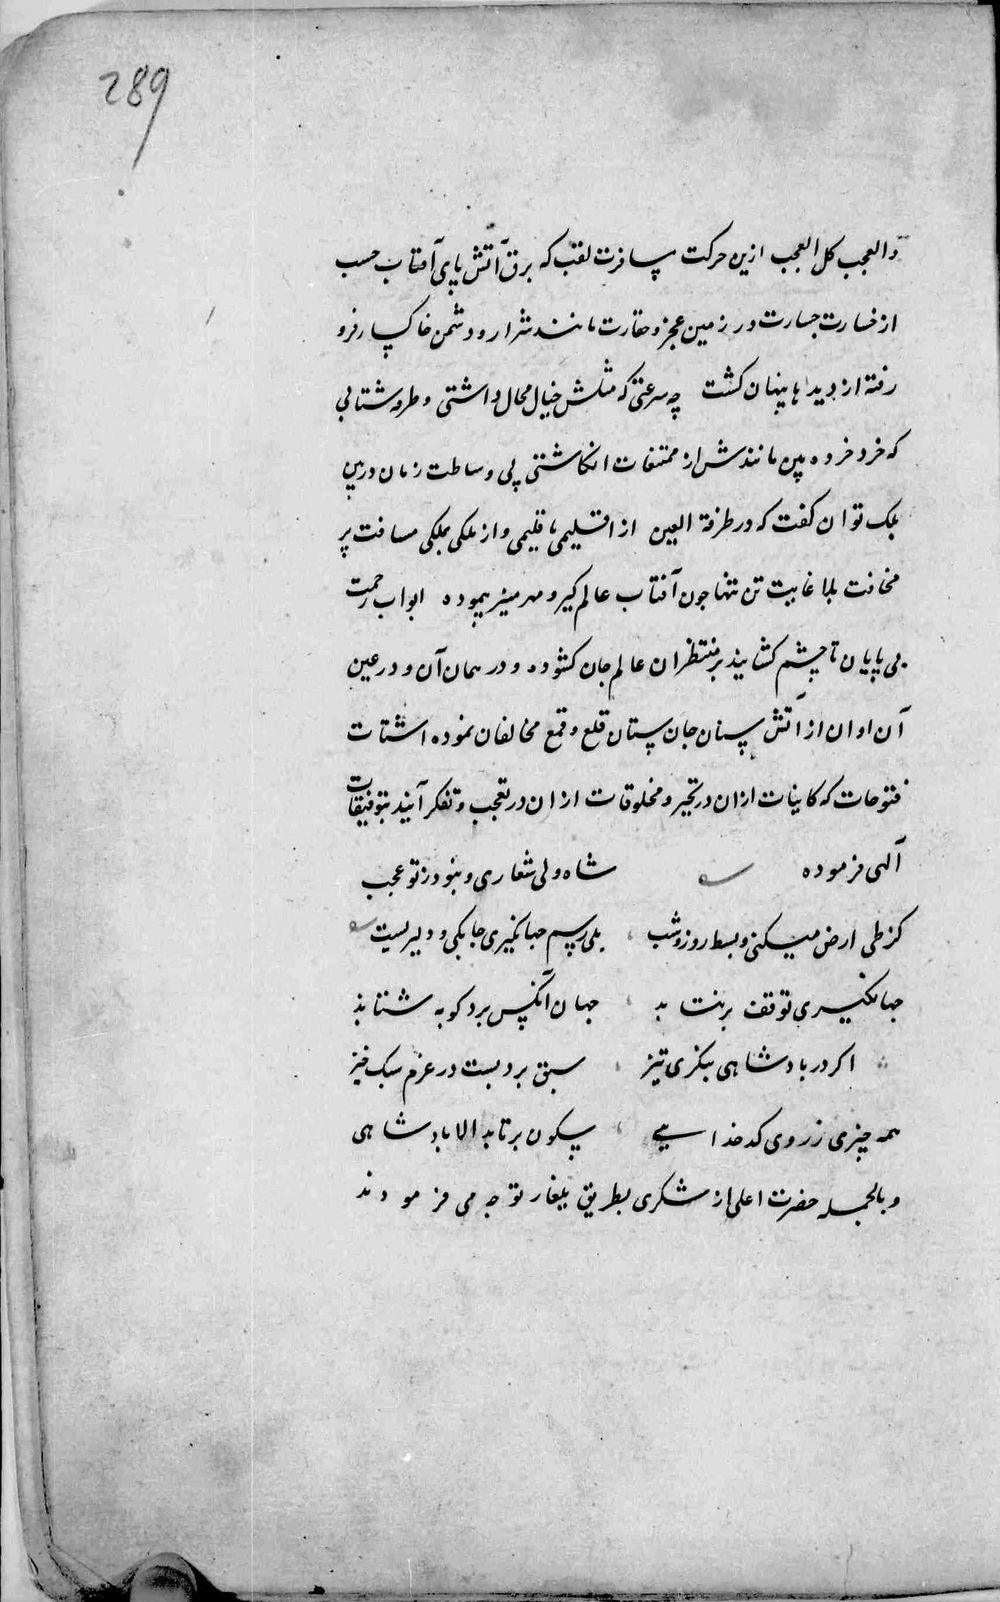 289
والعجب کل العجب ازین حرکت مسافرت لقب که برق آتش پای آفتاب حسب
از خسارت جسارت در زمین عجز و حقارت مانند شرار و دشمن خاکسار فرو
رفته از دیدها پنهان کشت چه سرعتی که مثلش خیال محال داشتی و طرفه شتابی
که خرد خرده بین مانندش از ممتنعات انکاشتی بی وساطت زمان درین
بلک توان کفت که در طرفة العین از اقلیمی باقلیمی و از ملکی بملکی مسافت پر
مخافت بلا غایت تن تنها چون آفتاب عالم کیر و مهر منیر پیموده ابواب رحمت
بی پایان تا چشم کشایند بر منتظران عالم جان کشوده و در همان آن و در عین
آن اوان از آتش سنان جان ستان قلع و قمع مخالفان نموده اشتات
فتوحات که کاینات ازان در تحیر و مخلوقات ازان در تعجب و تفکر آیند بتوفیقات
آلهی فرموده شاه ولی شعاری و نبود ز تو عجب
کز طی ارض میکنی و بسط روز و شب بلی رسم جهانکیری چابکی و دلیریست
جهانکیری توقف بر نتابد جهان آنکس برد کو به شتابد
اکر در بادشاهی بنکری تیز سبق بردست در عزم سبک خیز
همه چیزی ز روی کدخدایی سکون برتابد الا بادشاهی
و بالجمله حضرت اعلی از شکری بطریق یلغار توجه می فرمودند